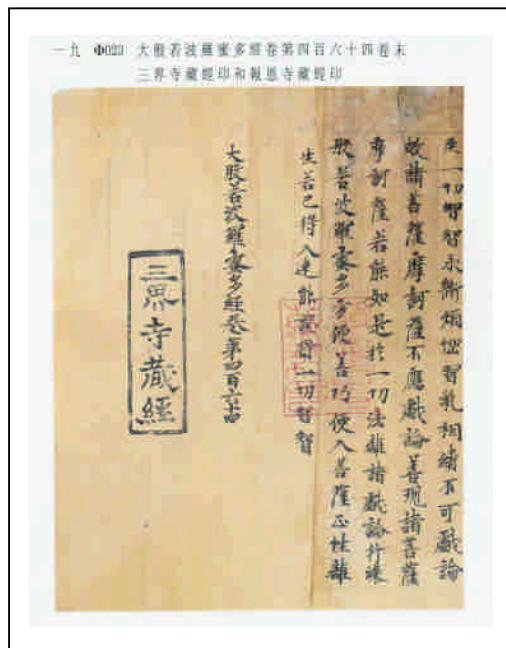 一九 Φ023 大般若波羅蜜多經卷第四百六十四卷末
三界寺藏經印和報恩寺藏經印
一切智智永斷煩惱習氣相續不可戲論
故諸菩薩摩訶薩不應戲論善現諸菩薩
摩訶薩若能如是於一切法離諸戲論行深
般若波羅蜜多方便善巧便入菩薩正性離
生若已得入速能證得一切智智
大般若波羅蜜多經卷第四百六十四
三界寺藏經